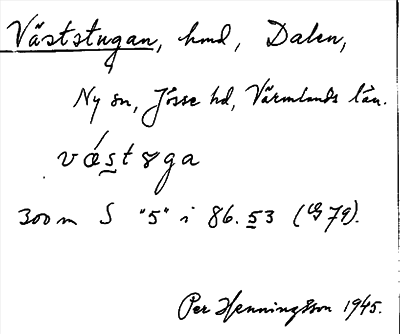 Väststugan, hmd, Dalen,
Ny sn, Jösse hd, Värmlands län.
vǽstɞga
300 m S "5" i 86.53 (LG 79).
Per Henningsson 1945.